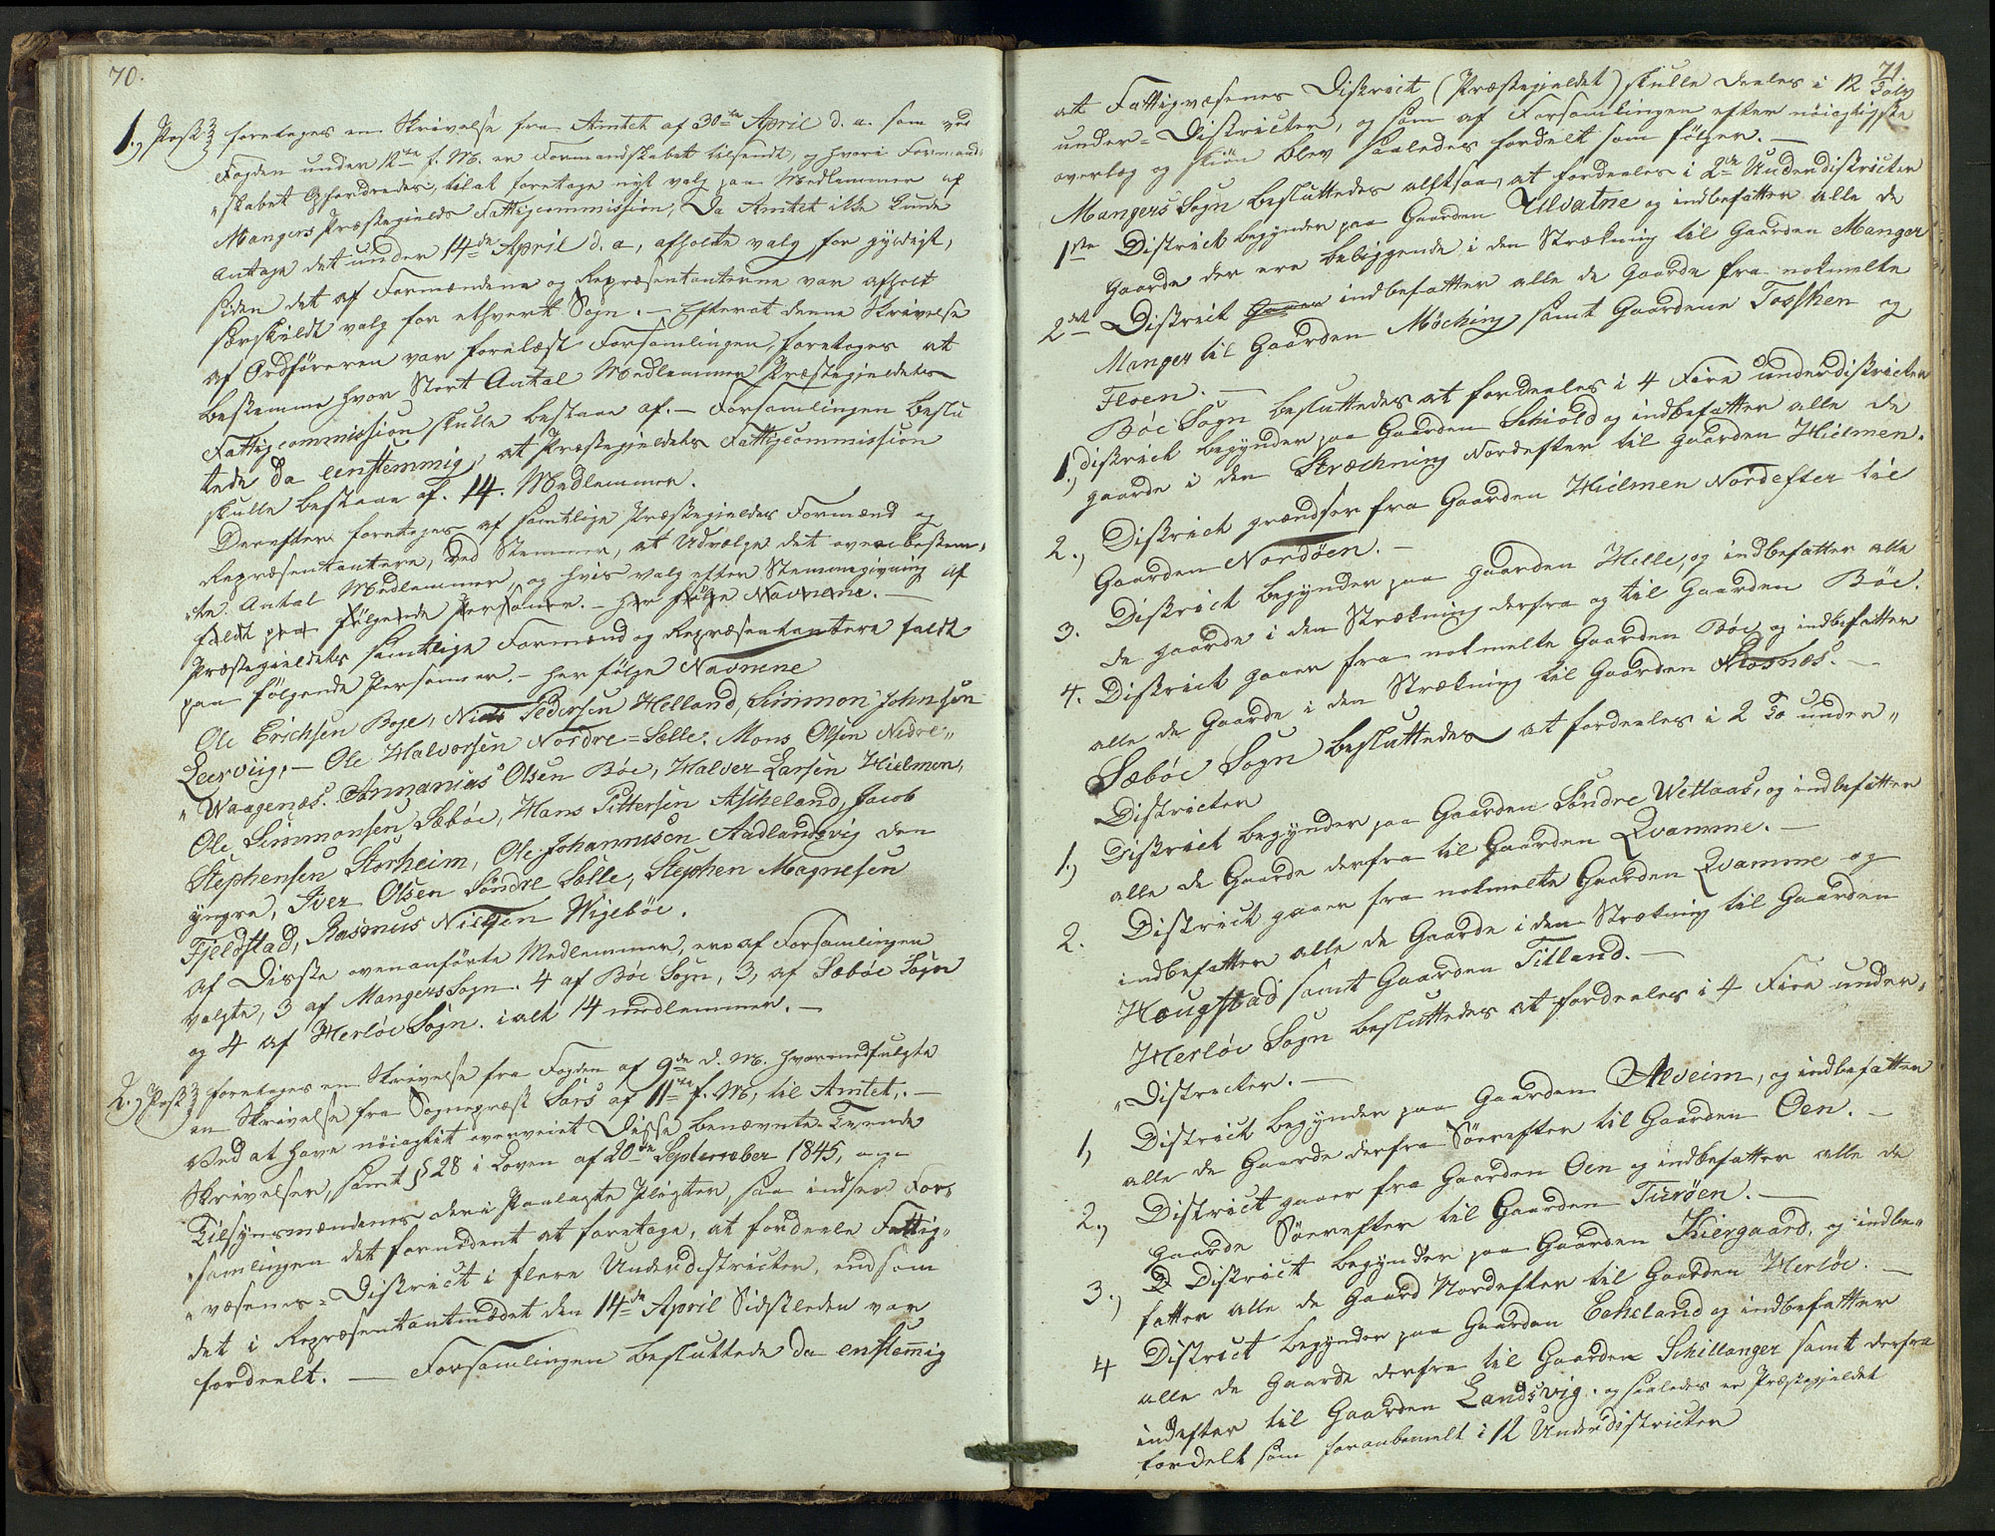 70.
1., Post foretages en Skrivelse fra Amtet af 30te April d. a. som ved
Fogden under 12te f. M. er Formandskabet tilsendt, og hvori Formand-
„skabet Opfordredes, til at foretage nyt valg paa Medlemmer af
Mangers Præstegjelds Fattigcommission, Da Amtet ikke kunde
antage det under 14de April d. a., afholdte valg for gyldigt,
siden det af Formændene og Repræsentanterne var afholt
særskildt valg for ethvert Sogn. — Efterat denne Skrivelse
af Ordføreren var forelæst Forsamlingen, foretoges at
bestemme hvor Stort Antal Medlemmer Præstegjeldets
Fattigcommission skulle bestaae af. — Forsamlingen beslu
tede da eenstemmig, at Præstegjeldets Fattigcommission
skulle bestaae af. 14. Medlemmer.
Derefter foretoges af samtlige Præstegjeldes Formænd og
Repræsentantere, ved Stemmer, at Udvælge det ovenbestem-
te Antal Medlemmer, og hvis valg efter Stemmegivning af
faldt paa følgende Personer. — her følge Navnene. —
Præstegjeldets samtlige Formænd og Repræsentantere faldt
paa følgende Personer. — her følge Navnene
Ole Erichsen Boge, Niels Pedersen Helland, Simmon Johnsen
Leerviig, — Ole Halvorsen Nordre=Sælle. Mons Olsen Nedre„
„Waagenæs. Annanias Olsen Bøe, Halver Larsen Hielmen,
Ole Simmonsen Sæbøe, Hans Pittersen Askeland, Jacob
Stephensen Storheim, Ole Johannisen Aadlandsvig den
yngre, Iver Olsen Søndre Sælle, Stephen Magnesen
Fjeldstad, Rasmus Nielsen Wigebøe.
Af Disse ovenanførte Medlemmer, ere af Forsamlingen
valgte, 3 af Mangers Sogn. 4 af Bøe Sogn, 3, af Sæbøe Sogn
og 4 af Herløe Sogn. ialt 14 medlemmer. —
2., Post foretages en Skrivelse fra Fogden af 9de d. M. hvormedfulgte
en Skrivelse fra Sognepræst Sars af 11te f. M, til Amtet. —
Ved at have nøiagtit overveiet Disse benævnte Tvende
Skrivelser, samt § 28 i Loven af 20de September 1845, om
Tilsynsmændenes deri Paalagte Pligter, saa indser For„
„samlingen det fornødent at foretage, at fordeele Fattig„
„væsenes=District i flere Underdistricter, end som
det i Repræsentantmødet den 14de April Sidstleden var
fordeelt. — Forsamlingen besluttede da enstemmig
71.
at Fattigvæsenes District (Præstegjeldet) skulle deeles i 12 Tolv
under=Districter, og som af Forsamlingen efter nøiagtigste
overlæg og skiøn blev saaledes fordelt som følger. —
Mangers Sogn besluttedes altsaa, at fordeeles i 2de Underdistricter
1ste District begynder paa Gaarden Ulvatne og indbefatter alle de
Gaarde der ere beliggende i den Strækning til Gaarden Manger
2det District Gaaer indbefatter alle de Gaarde fra notmelte
Manger til Gaarden Møching samt Gaardene Tossken og
Floen. —
Bøe Sogn besluttedes at fordeeles i 4 Fire underdistricter
1., District begynder paa Gaarden Schiold og indbefatter alle de
gaarde i den Stræchning Nordefter til gaarden Hielmen.
2., District grændser fra Gaarden Hielmen Nordefter til
Gaarden Nordøen. —
3. District begynder paa gaarden Hille, og indbefatter alle
de gaarde i den Strækning derfra og til Gaarden Bøe.
4. District gaaer fra notmelte Gaarden Bøe og indbefatter
alle de Gaarde i den Strækning til Gaarden Risnæs. —
Sæbøe Sogn besluttedes at fordeeles i 2 To under„
Districter
1., District begynder paa Gaarden Søndre Wettaas, og indbefatter
alle de Gaarde derfra til Gaarden Qvamme. —
2. District gaaer fra notmelte Gaarden Qvamme og
indbefatter alle de Gaarde i den Strækning til Gaarden
Hougstad samt Gaarden Titland. —
Herløe Sogn besluttedes at fordeeles i 4 Fire under„
„Districter. —
1, District begynder paa Gaarden Alveim, og indbefatter
alle de Gaarde derfra Søerefter til Gaarden Oen. —
2., District gaaer fra Gaarden Oen og indbefatter alle de
gaarde Søerefter til Gaarden Turøen. —
3., District begynder paa Gaarden Kiergaard, og indbe„
fatter alle de Gaard Nordefter til Gaarden Herløe. —
4 District begynder paa Gaarden Echeland og indbefatter
alle de Gaarde derfra til Gaarden Schillanger samt derfra
indefter til Gaarden Landsvig. og saaledes er Præstegjeldet
fordelt som foranbemelt i 12 Underdistricter